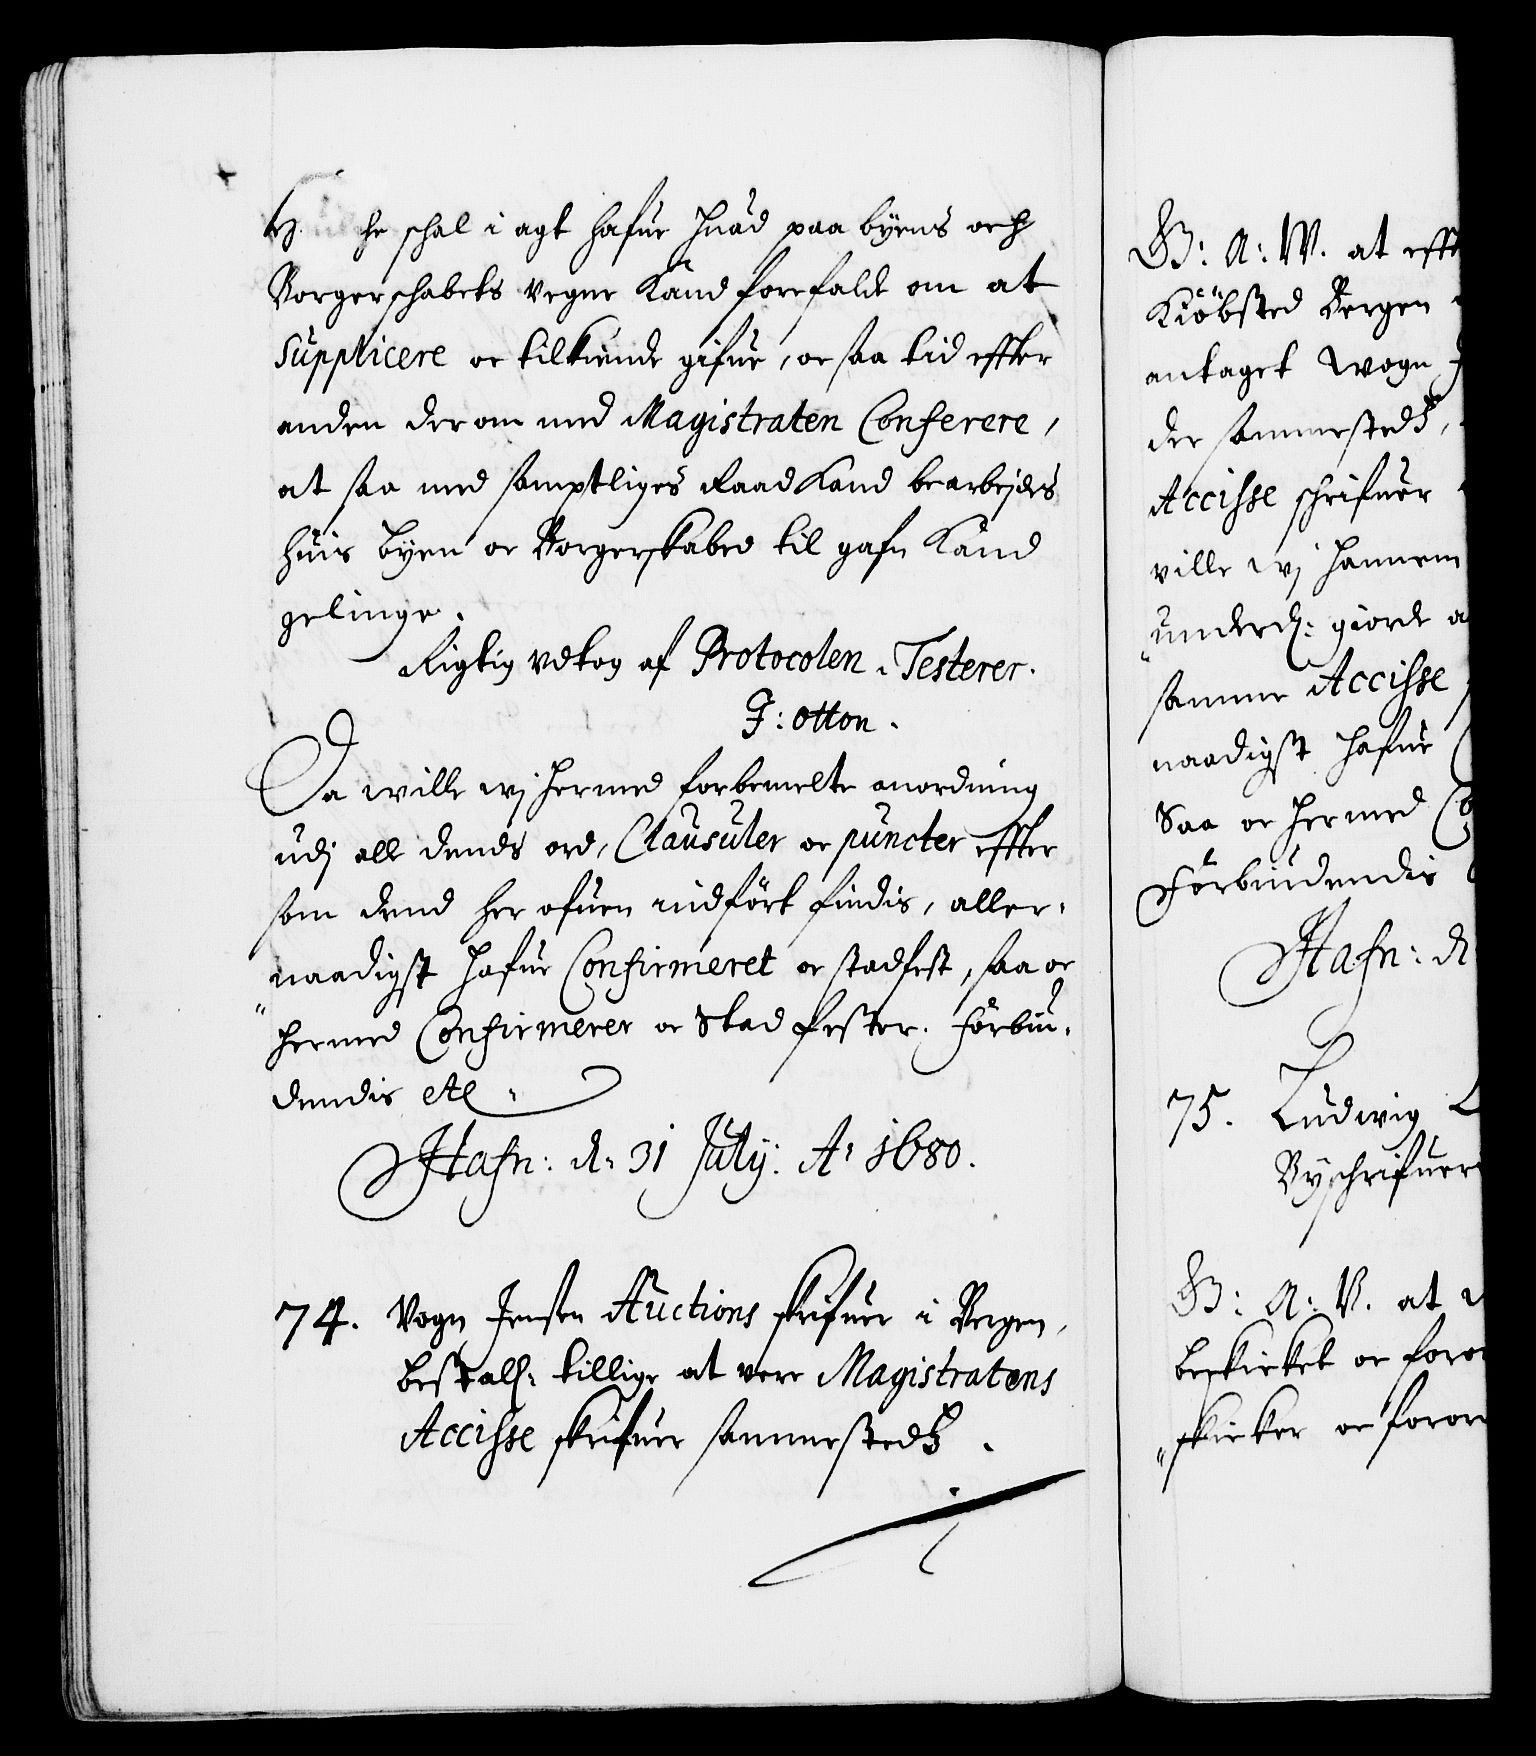 13. he schal i agt hafue huad paa byens och
Borgerschabets vegne kand forefalde om at
Supplicere oc tilkiende gifue, oc saa tid effter
anden der om med Magistraten Conferere,
at saa med samptliges Raad kand bearbejdes
huis byen oc Borgerskabed til gafn kand
gelinge.
Rigtig vdtog af Protocolen. Testerer.
F: Otton.
Da wille wj hermed forbemelte anordning
udj alle dends ord, Clausuler oc puncter effter
som dend her ofuen indført findis, aller-
naadigst hafue Confirmeret oc stadfest, saa oc
hermed Confirmerer oc Stadfester. Forbiu-
dendis etc.
Hafn: d. 31 July: A: 1680.
74. Vogn Jensen Auctions skrifuer i Bergen,
bestall: tillige at vere Magistratens
Accisse skrifuer sammestedtz.
G: A: W. at efft
Kiøbsted Bergen
antaget Wogn J
der sammestedtz,
Accisse schrifuer
ville wj hannem
underd: giorde a
samme Accisse
naadigst hafue
Saa oc hermed Co
Forbiudendis
Hafn: d
75. Ludwig
Byschrifuer
G: A: V. at
beskicket oc foror
skicker oc foror